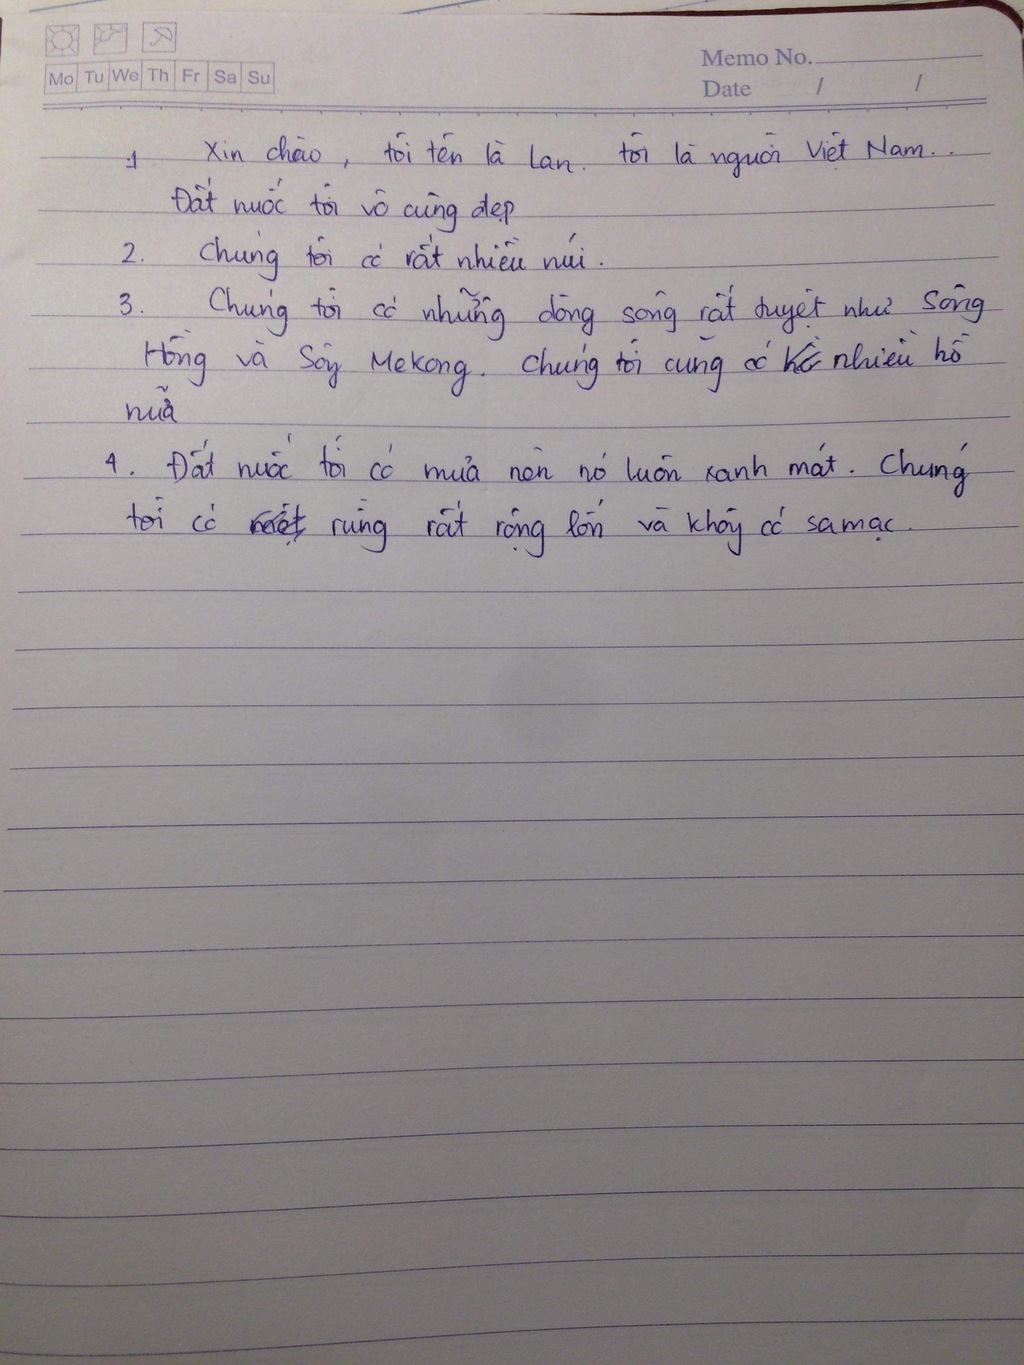 Mo Tu We Th Fr Sa Su
Memo No.
Date / /
1 Xin chào, tôi tên là Lan. tôi là người Việt Nam..
Đất nước tôi vô cùng đẹp
2. Chúng tôi có rất nhiều núi.
3. Chúng tôi có những dòng sông rất tuyệt như Sông
Hồng và Sôg Mekong. Chúng tôi cũng có nhiều hồ
nữa
4. Đất nước tôi có mưa nên nó luôn xanh mát. Chúng
tôi có rừng rất rộng lớn và khôg có sa mạc.